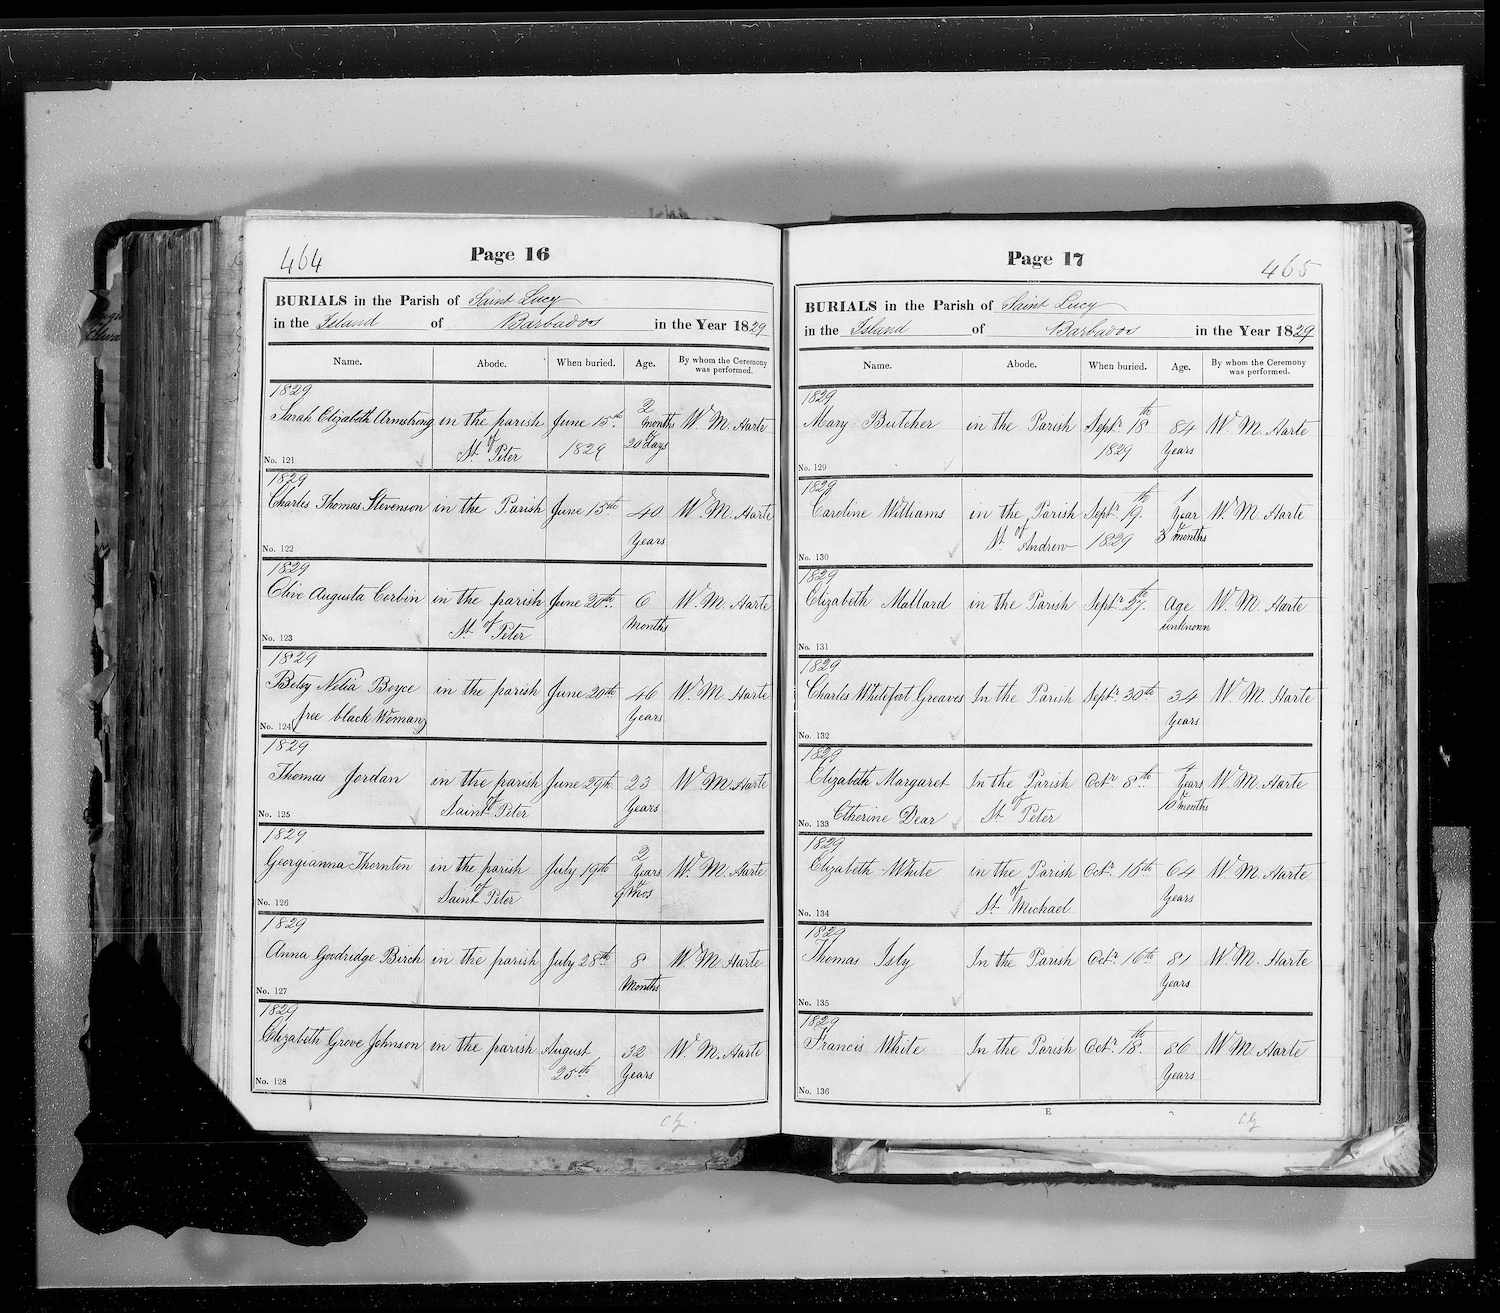 464
Page 16
BURIALS in the Parish of Saint Lucy
in the Island of Barbados in the Year 1829
Name. Abode. When buried. Age. By whom the Ceremony was performed.
1829
Sarah Elizabeth Armstrong in the parish June 15th 2 months W. M. Harte
of St. Peter 1829 20 days
No. 121
1829
Charles Thomas Stevenson in the Parish June 15th 40 W. M. Harte
Years
No. 122
1829
Olive Augusta Corbin in the parish June 20th 6 W. M. Harte
of St. Peter Months
No. 123
1829
Betsy Nelia Boyce in the parish June 20th 46 W. M. Harte
No. 124 (free black Woman) Years
1829
Thomas Jordan in the parish June 29th 23 W. M. Harte
of Saint Peter Years
No. 125
1829
Georgianna Thornton in the parish July 19th 2 Years W. M. Harte
of Saint Peter 9 mos
No. 126
1829
Anna Goodridge Birch in the parish July 28th 8 W. M. Harte
Months
No. 127
1829
Elizabeth Grove Johnson in the parish August 32 W. M. Harte
25th Years
No. 128
Page 17
465
BURIALS in the Parish of Saint Lucy
in the Island of Barbados in the Year 1829
Name. Abode. When buried. Age. By whom the Ceremony was performed.
1829
Mary Butcher in the Parish Septr 18th 84 W. M. Harte
1829 Years
No. 129
1829
Caroline Williams in the Parish Septr 19th 1 Year W. M. Harte
of St. Andrew 1829 3 months
No. 130
1829
Elizabeth Mallard in the Parish Septr 27th Age W. M. Harte
unknown
No. 131
1829
Charles Whitefoot Greaves In the Parish Septr 30th 34 W. M. Harte
Years
No. 132
1829
Elizabeth Margaret In the Parish Octr 8th Years W. M. Harte
No. 133 Etherine Dear of St. Peter 10 months
1829
Elizabeth White in the Parish Octr 15th 64 W. M. Harte
of St. Michael Years
No. 134
1829
Thomas Isly In the Parish Octr 16th 81 W. M. Harte
Years
No. 135
1829
Francis White In the Parish Octr 18th 86 W. M. Harte
Years
No. 136
E